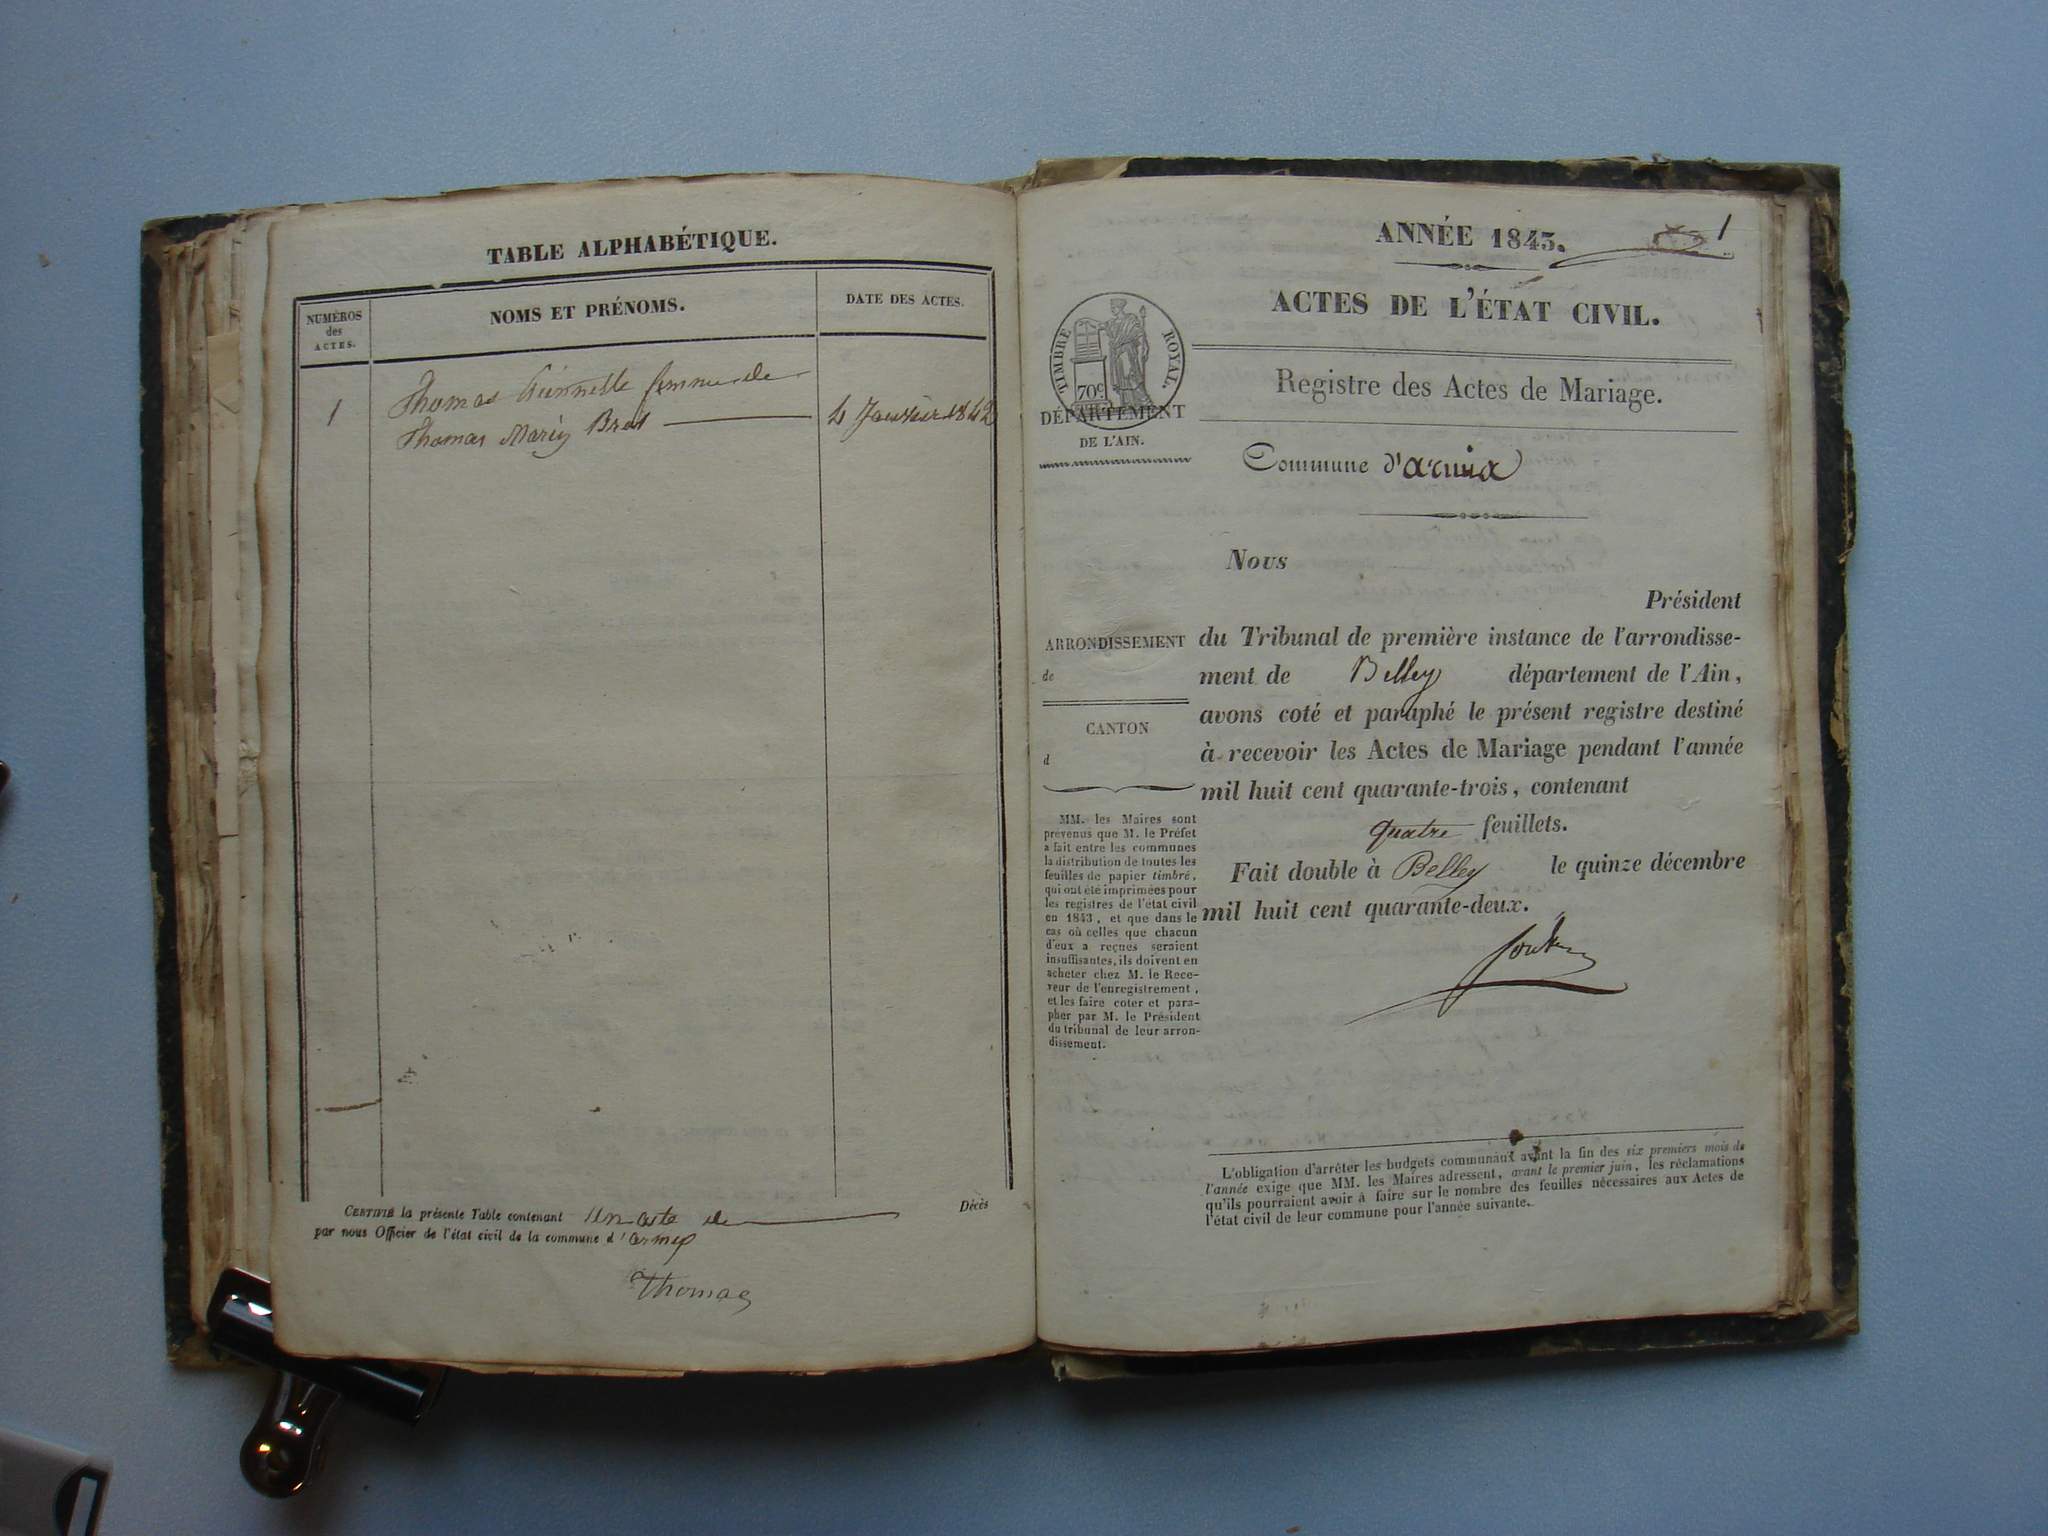 TABLE ALPHABÉTIQUE.
NUMÉROS
des
ACTES.
NOMS ET PRÉNOMS.
DATE DES ACTES.
Thomas femme de
1
Thomas Marin Brat
4 Janvier 1842
CERTIFIÉ la présente Table contenant un acte de Décès
par nous Officier de l'état civil de la commune d'armix
Thomas
1
ANNÉE 1843.
ACTES DE L'ÉTAT CIVIL.
TIMBRE ROYAL.
70c
Registre des Actes de Mariage.
DÉPARTEMENT
DE L'AIN.
Commune d'armix
Nous
Président
du Tribunal de première instance de l'arrondisse-
ment de Belley département de l'Ain,
avons coté et paraphé le présent registre destiné
à recevoir les Actes de Mariage pendant l'année
mil huit cent quarante-trois, contenant
quatre feuillets.
Fait double à Belley le quinze décembre
mil huit cent quarante-deux.
ARRONDISSEMENT
de
CANTON
d
MM. les Maires sont
prévenus que M. le Préfet
a fait entre les communes
la distribution de toutes les
feuilles de papier timbré,
qui ont été imprimées pour
les registres de l'état civil
en 1843, et que dans le
cas où celles que chacun
d'eux a reçues seraient
insuffisantes, ils doivent en
acheter chez M. le Rece-
veur de l'enregistrement,
et les faire coter et para-
pher par M. le Président
du tribunal de leur arron-
dissement.
L'obligation d'arrêter les budgets communaux avant la fin des six premiers mois de
l'année exige que MM. les Maires adressent, avant le premier juin, les réclamations
qu'ils pourraient avoir à faire sur le nombre des feuilles nécessaires aux Actes de
l'état civil de leur commune pour l'année suivante.